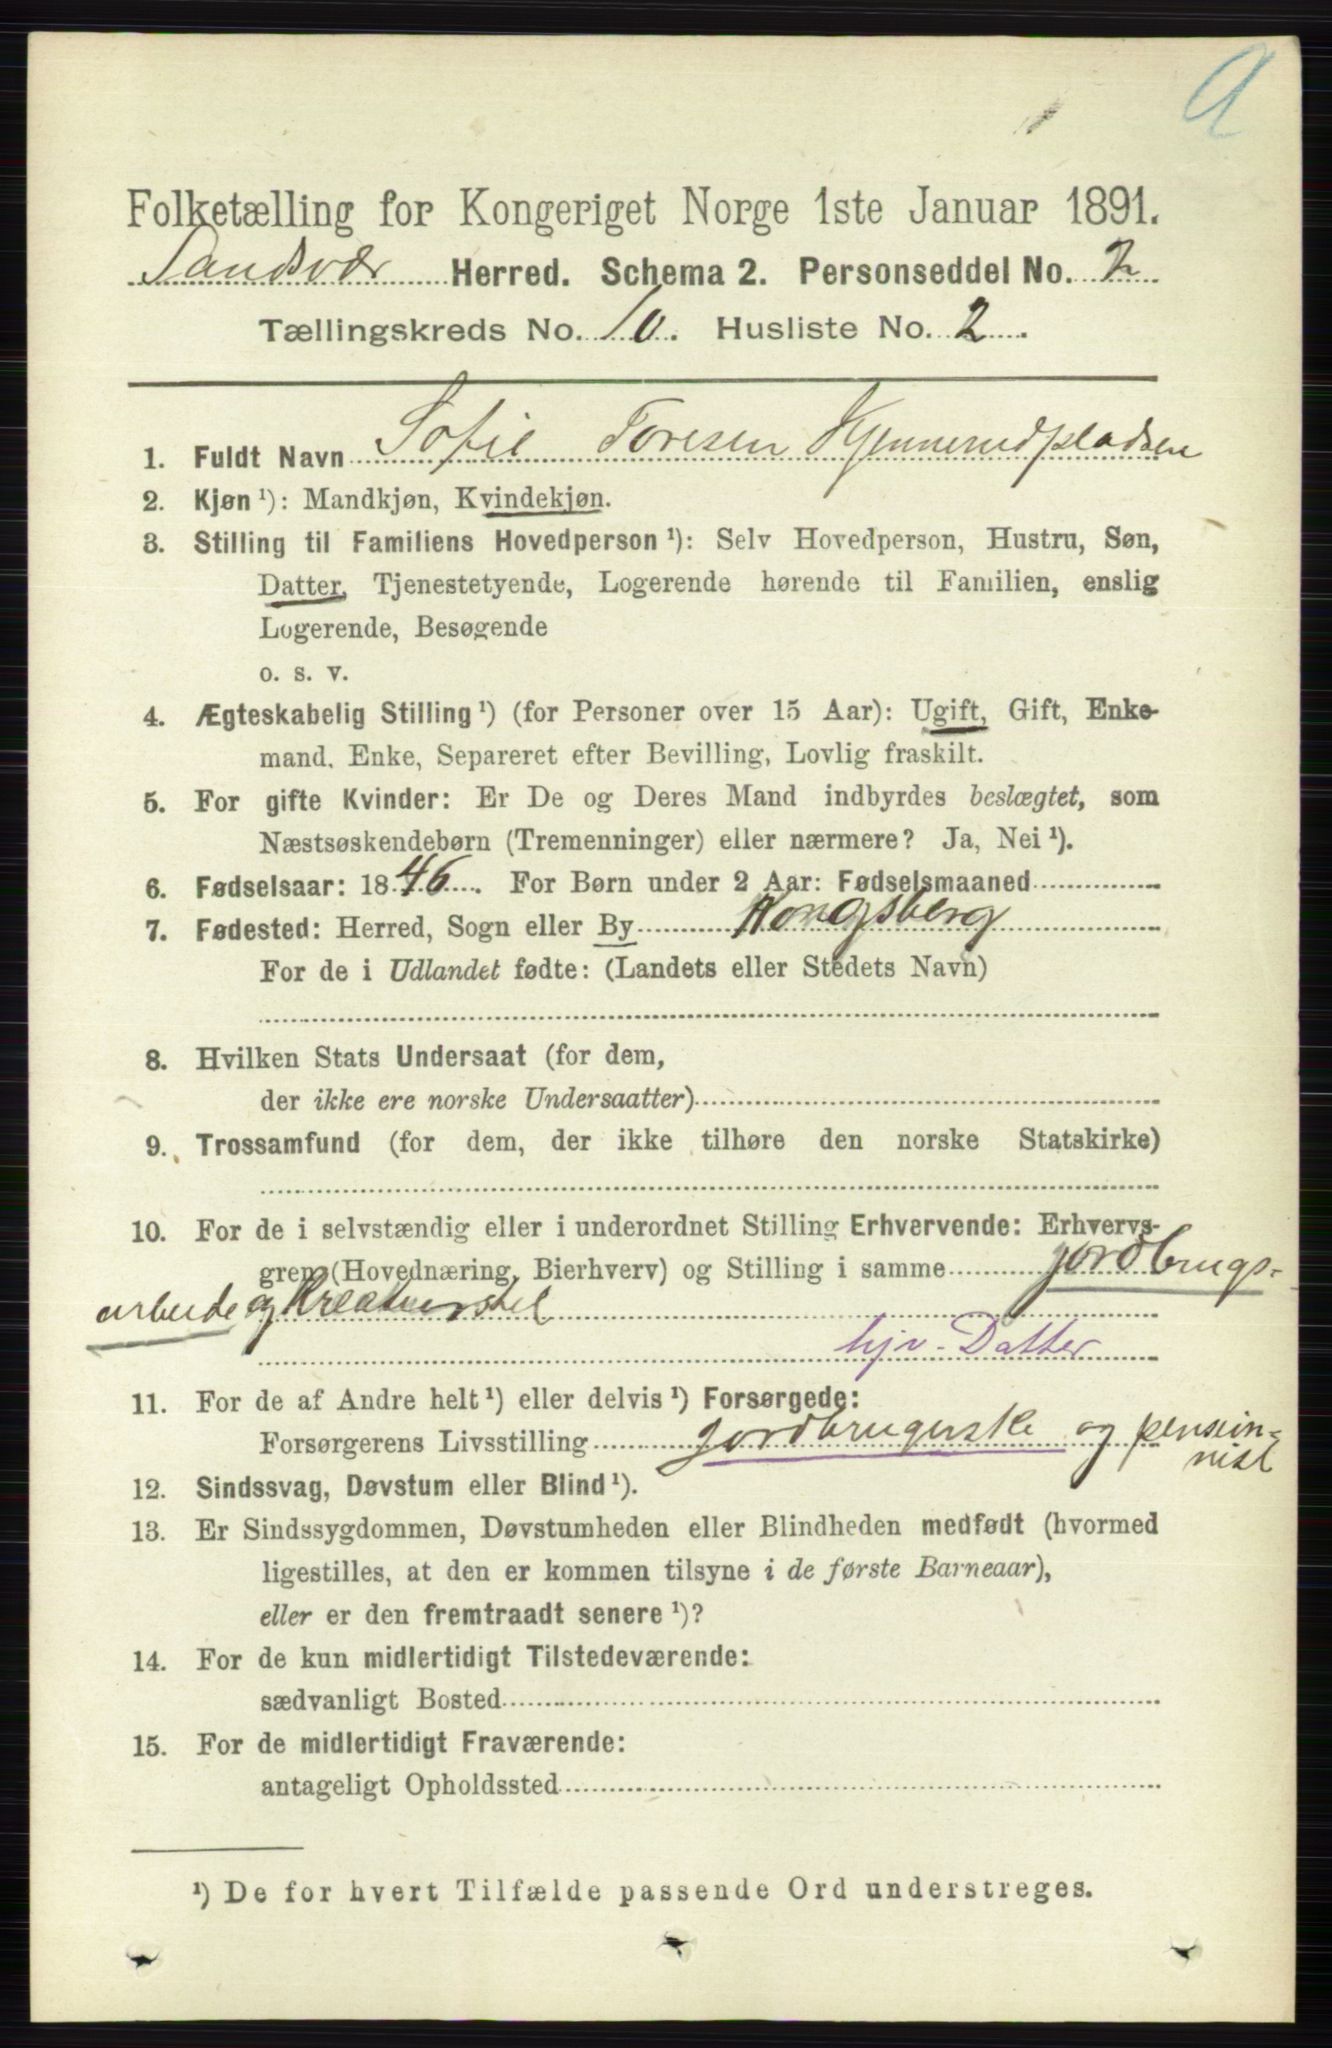 a
Folketælling for Kongeriget Norge 1ste Januar 1891.
Sandsvær Herred. Schema 2. Personseddel No. 2
Tællingskreds No. 10. Husliste No. 2.
1. Fuldt Navn Sofie Toresen Kjennerudpladsen
2. Kjøn ¹): Mandkjøn, Kvindekjøn.
3. Stilling til Familiens Hovedperson ¹): Selv Hovedperson, Hustru, Søn,
Datter, Tjenestetyende, Logerende hørende til Familien, enslig
Logerende, Besøgende
o. s. v.
4. Ægteskabelig Stilling ¹) (for Personer over 15 Aar): Ugift, Gift, Enke-
mand, Enke, Separeret efter Bevilling, Lovlig fraskilt.
5. For gifte Kvinder: Er De og Deres Mand indbyrdes beslægtet, som
Næstsøskendebørn (Tremenninger) eller nærmere? Ja, Nei ¹).
6. Fødselsaar: 1846. For Børn under 2 Aar: Fødselsmaaned
7. Fødested: Herred, Sogn eller By Kongsberg
For de i Udlandet fødte: (Landets eller Stedets Navn)
8. Hvilken Stats Undersaat (for dem,
der ikke ere norske Undersaatter)
9. Trossamfund (for dem, der ikke tilhøre den norske Statskirke)
10. For de i selvstændig eller i underordnet Stilling Erhvervende: Erhvervs-
gren (Hovednæring, Bierhverv) og Stilling i samme jordbrugs-
arbeide og Kreaturstel
hjv-Datter
11. For de af Andre helt ¹) eller delvis ¹) Forsørgede:
Forsørgerens Livsstilling jordbrugerske og pensin-
nist
12. Sindssvag, Døvstum eller Blind ¹).
13. Er Sindssygdommen, Døvstumheden eller Blindheden medfødt (hvormed
ligestilles, at den er kommen tilsyne i de første Barneaar),
eller er den fremtraadt senere ¹)?
14. For de kun midlertidigt Tilstedeværende:
sædvanligt Bosted
15. For de midlertidigt Fraværende:
antageligt Opholdssted
¹) De for hvert Tilfælde passende Ord understreges.